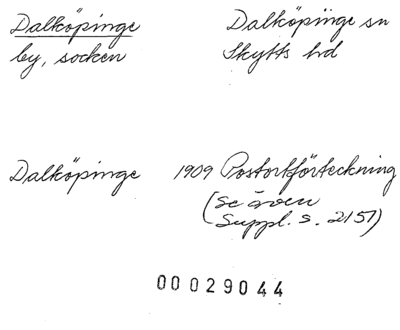 Dalköpinge Dalköpinge sn
by, socken Skytts hd
Dalköpinge 1909 Postortförteckning
(se även
Suppl. s. 2151)
00029044